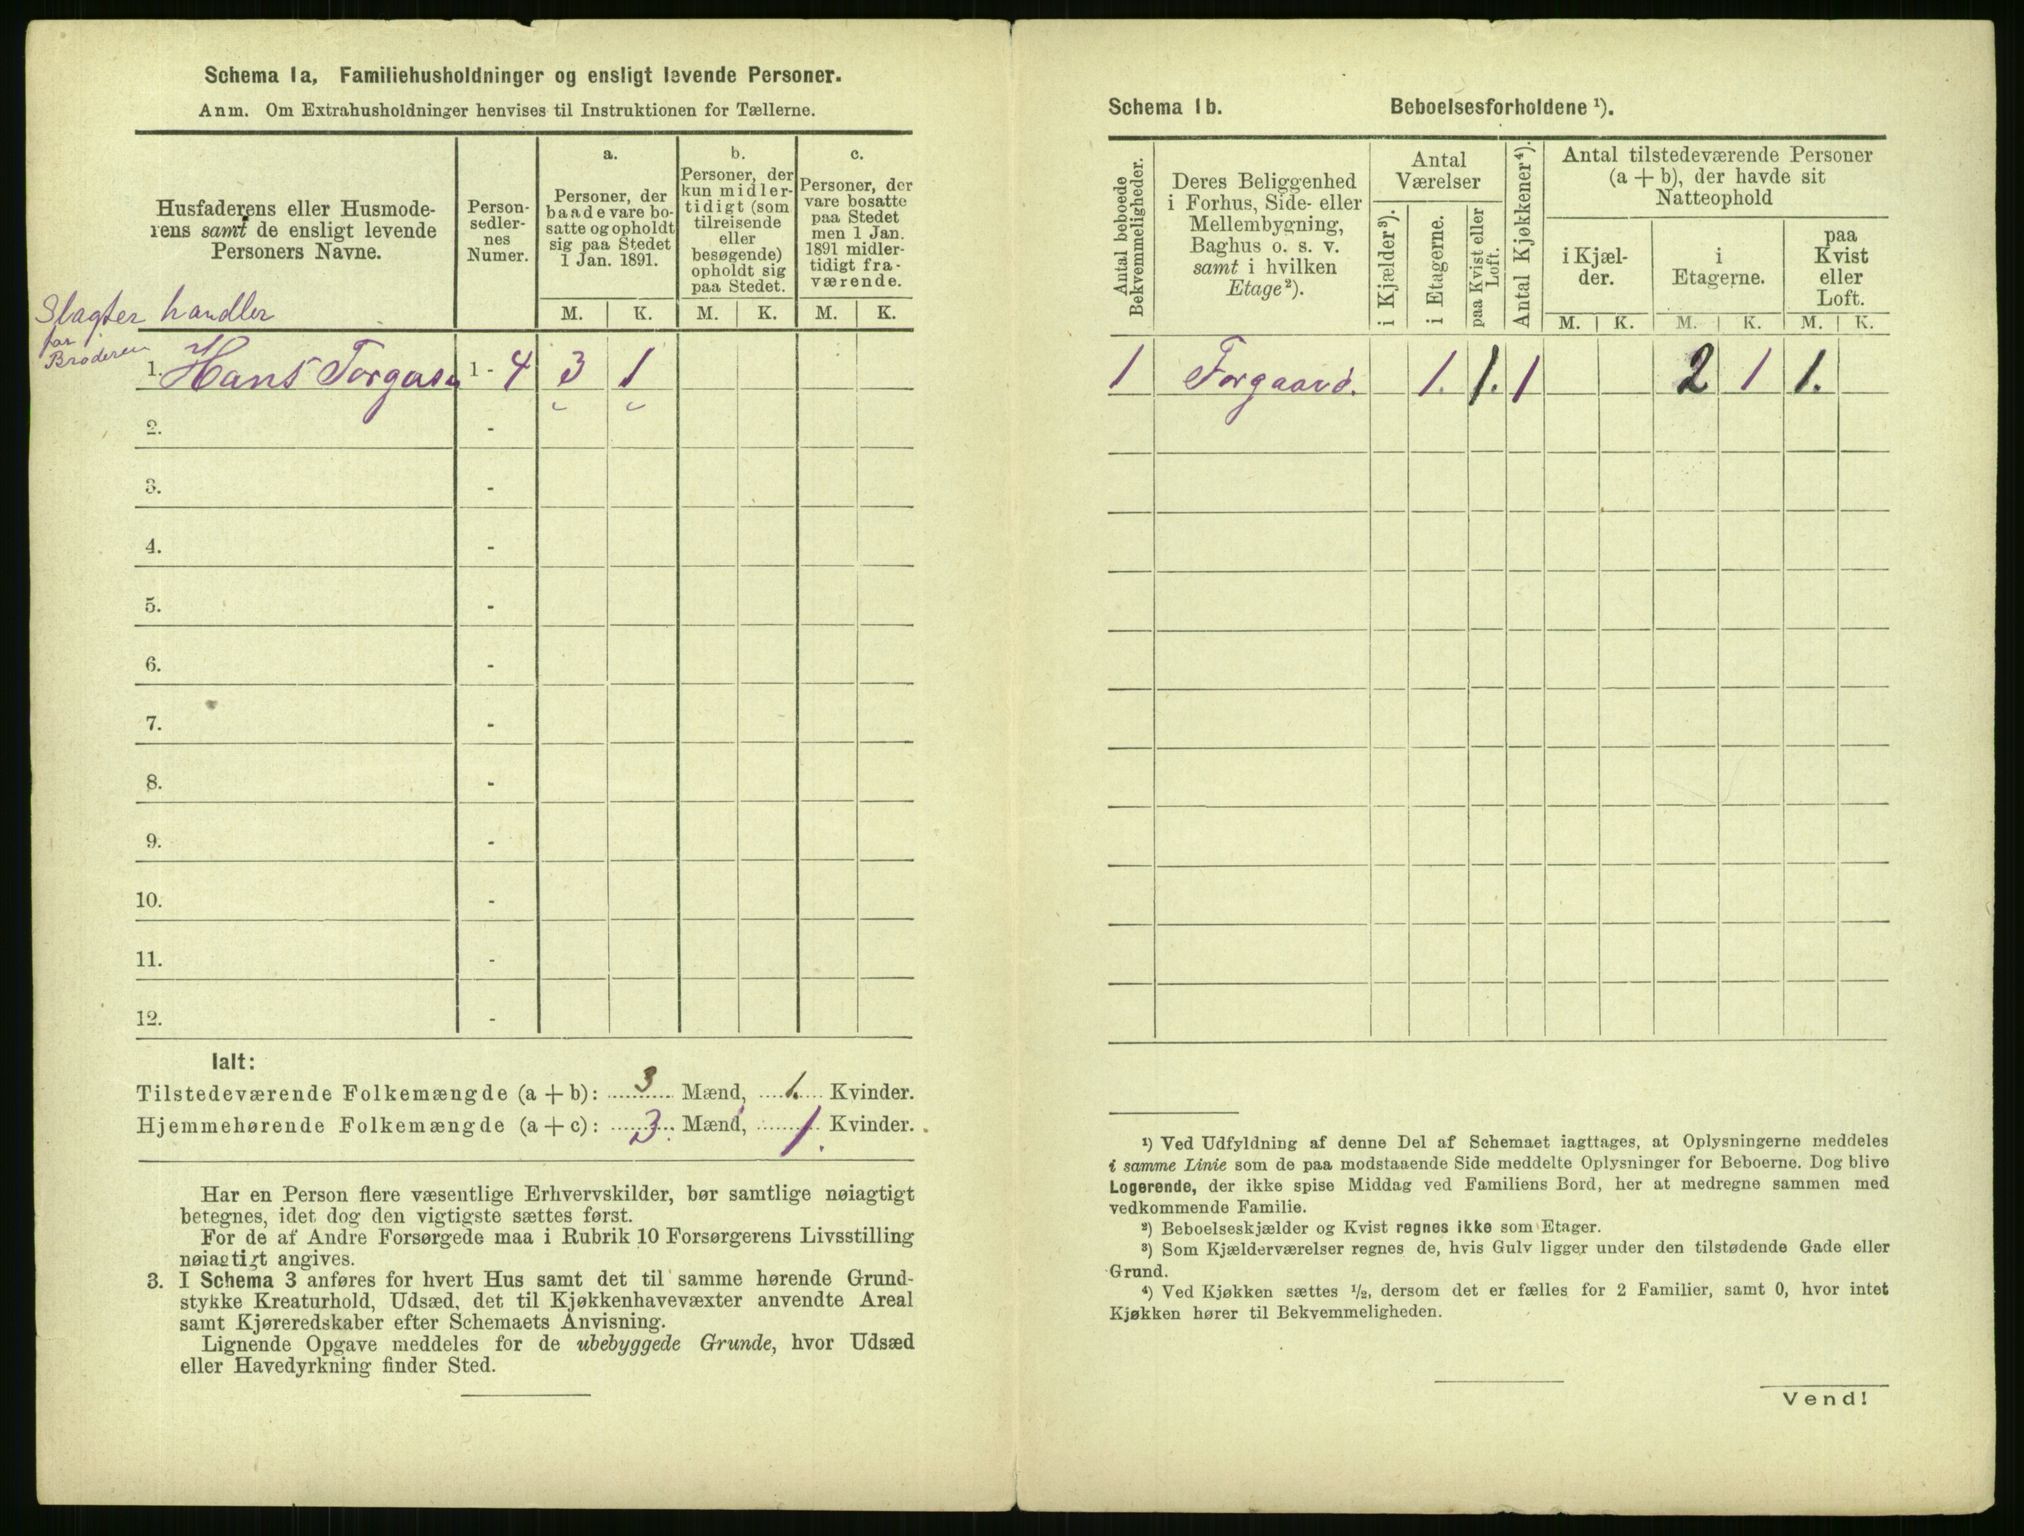 Schema 1a, Familiehusholdninger og ensligt levende Personer.
Anm. Om Extrahusholdninger henvises til Instruktionen for Tællerne.
Husfaderens eller Husmode-
rens samt de ensligt levende
Personers Navne.
Person-
sedler-
nes
Numer.
a.
Personer, der
baade vare bo-
satte og opholdt
sig paa Stedet
1 Jan. 1891.
b.
Personer, der
kun midler-
tidigt (som
tilreisende
eller
besøgende)
opholdt sig
paa Stedet.
c.
Personer, der
vare bosatte
paa Stedet
men 1 Jan.
1891 midler-
tidigt fra-
værende.
M. K. M. K. M. K.
Slagter handler
for
Broderen
1. Hans Torgas 1 - 4 3 1
2. -
3. -
4. -
5. -
6. -
7. -
8. -
9. -
10. -
11. -
12. -
Ialt:
Tilstedeværende Folkemængde (a + b): 3 Mænd, 1. Kvinder.
Hjemmehørende Folkemængde (a + c): 3. Mænd, 1. Kvinder.
Har en Person flere væsentlige Erhvervskilder, bør samtlige nøiagtigt
betegnes, idet dog den vigtigste sættes først.
For de af Andre Forsørgede maa i Rubrik 10 Forsørgerens Livsstilling
nøiagtigt angives.
3. I Schema 3 anføres for hvert Hus samt det til samme hørende Grund-
stykke Kreaturhold, Udsæd, det til Kjøkkenhavevæxter anvendte Areal
samt Kjøreredskaber efter Schemaets Anvisning.
Lignende Opgave meddeles for de ubebyggede Grunde, hvor Udsæd
eller Havedyrkning finder Sted.
Schema 1b. Beboelsesforholdene ¹).
Antal beboede
Bekvemmeligheder.
Deres Beliggenhed
i Forhus, Side- eller
Mellembygning,
Baghus o. s. v.
samt i hvilken
Etage²).
Antal
Værelser
i Kjælder³).
i Etagerne.
paa Kvist eller
Loft.
Antal Kjøkkener⁴).
Antal tilstedeværende Personer
(a + b), der havde sit
Natteophold
i Kjæl-
der.
i
Etagerne.
paa
Kvist
eller
Loft.
M. K. M. K. M. K.
1 Forgaard. 1. 1. 1 2 1 1.
¹) Ved Udfyldning af denne Del af Schemaet iagttages, at Oplysningerne meddeles
i samme Linie som de paa modstaaende Side meddelte Oplysninger for Beboerne. Dog blive
Logerende, der ikke spise Middag ved Familiens Bord, her at medregne sammen med
vedkommende Familie.
²) Beboelseskjælder og Kvist regnes ikke som Etager.
³) Som Kjælderværelser regnes de, hvis Gulv ligger under den tilstødende Gade eller
Grund.
⁴) Ved Kjøkken sættes ½, dersom det er fælles for 2 Familier, samt 0, hvor intet
Kjøkken hører til Bekvemmeligheden.
Vend!